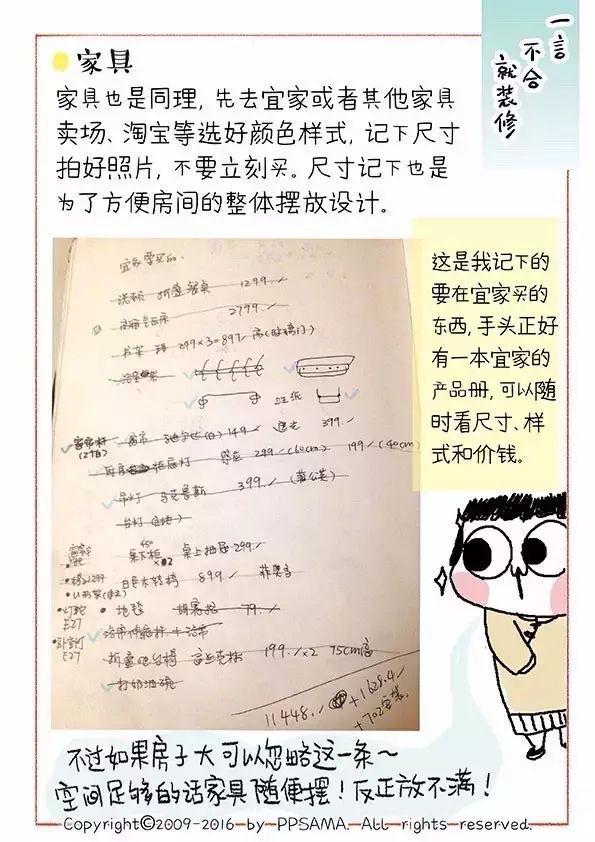 一言
不合
就装修
家具
家具也是同理, 先去宜家或者其他家具
卖场、淘宝等选好颜色样式, 记下尺寸
拍好照片, 不要立刻买。尺寸记下也是
为了方便房间的整体摆放设计。
宜家要买的.
1299./
2799./
299×3=897/
149/ 399./
299/(60cm) 199/(40cm)
吊灯 399./ (蒲公英)
桌下柜 ×2 桌上抽屉 299./
899./
E27 地毯 79./
199./×2 75cm高
E27
11448./ +1628.4/
这是我记下的
要在宜家买的
东西, 手头正好
有一本宜家的
产品册, 可以随
时看尺寸、样
式和价钱。
不过如果房子大可以忽略这一条~
空间足够的话家具随便摆!反正放不满!
Copyright©2009-2016 by PPSAMA. All rights reserved.